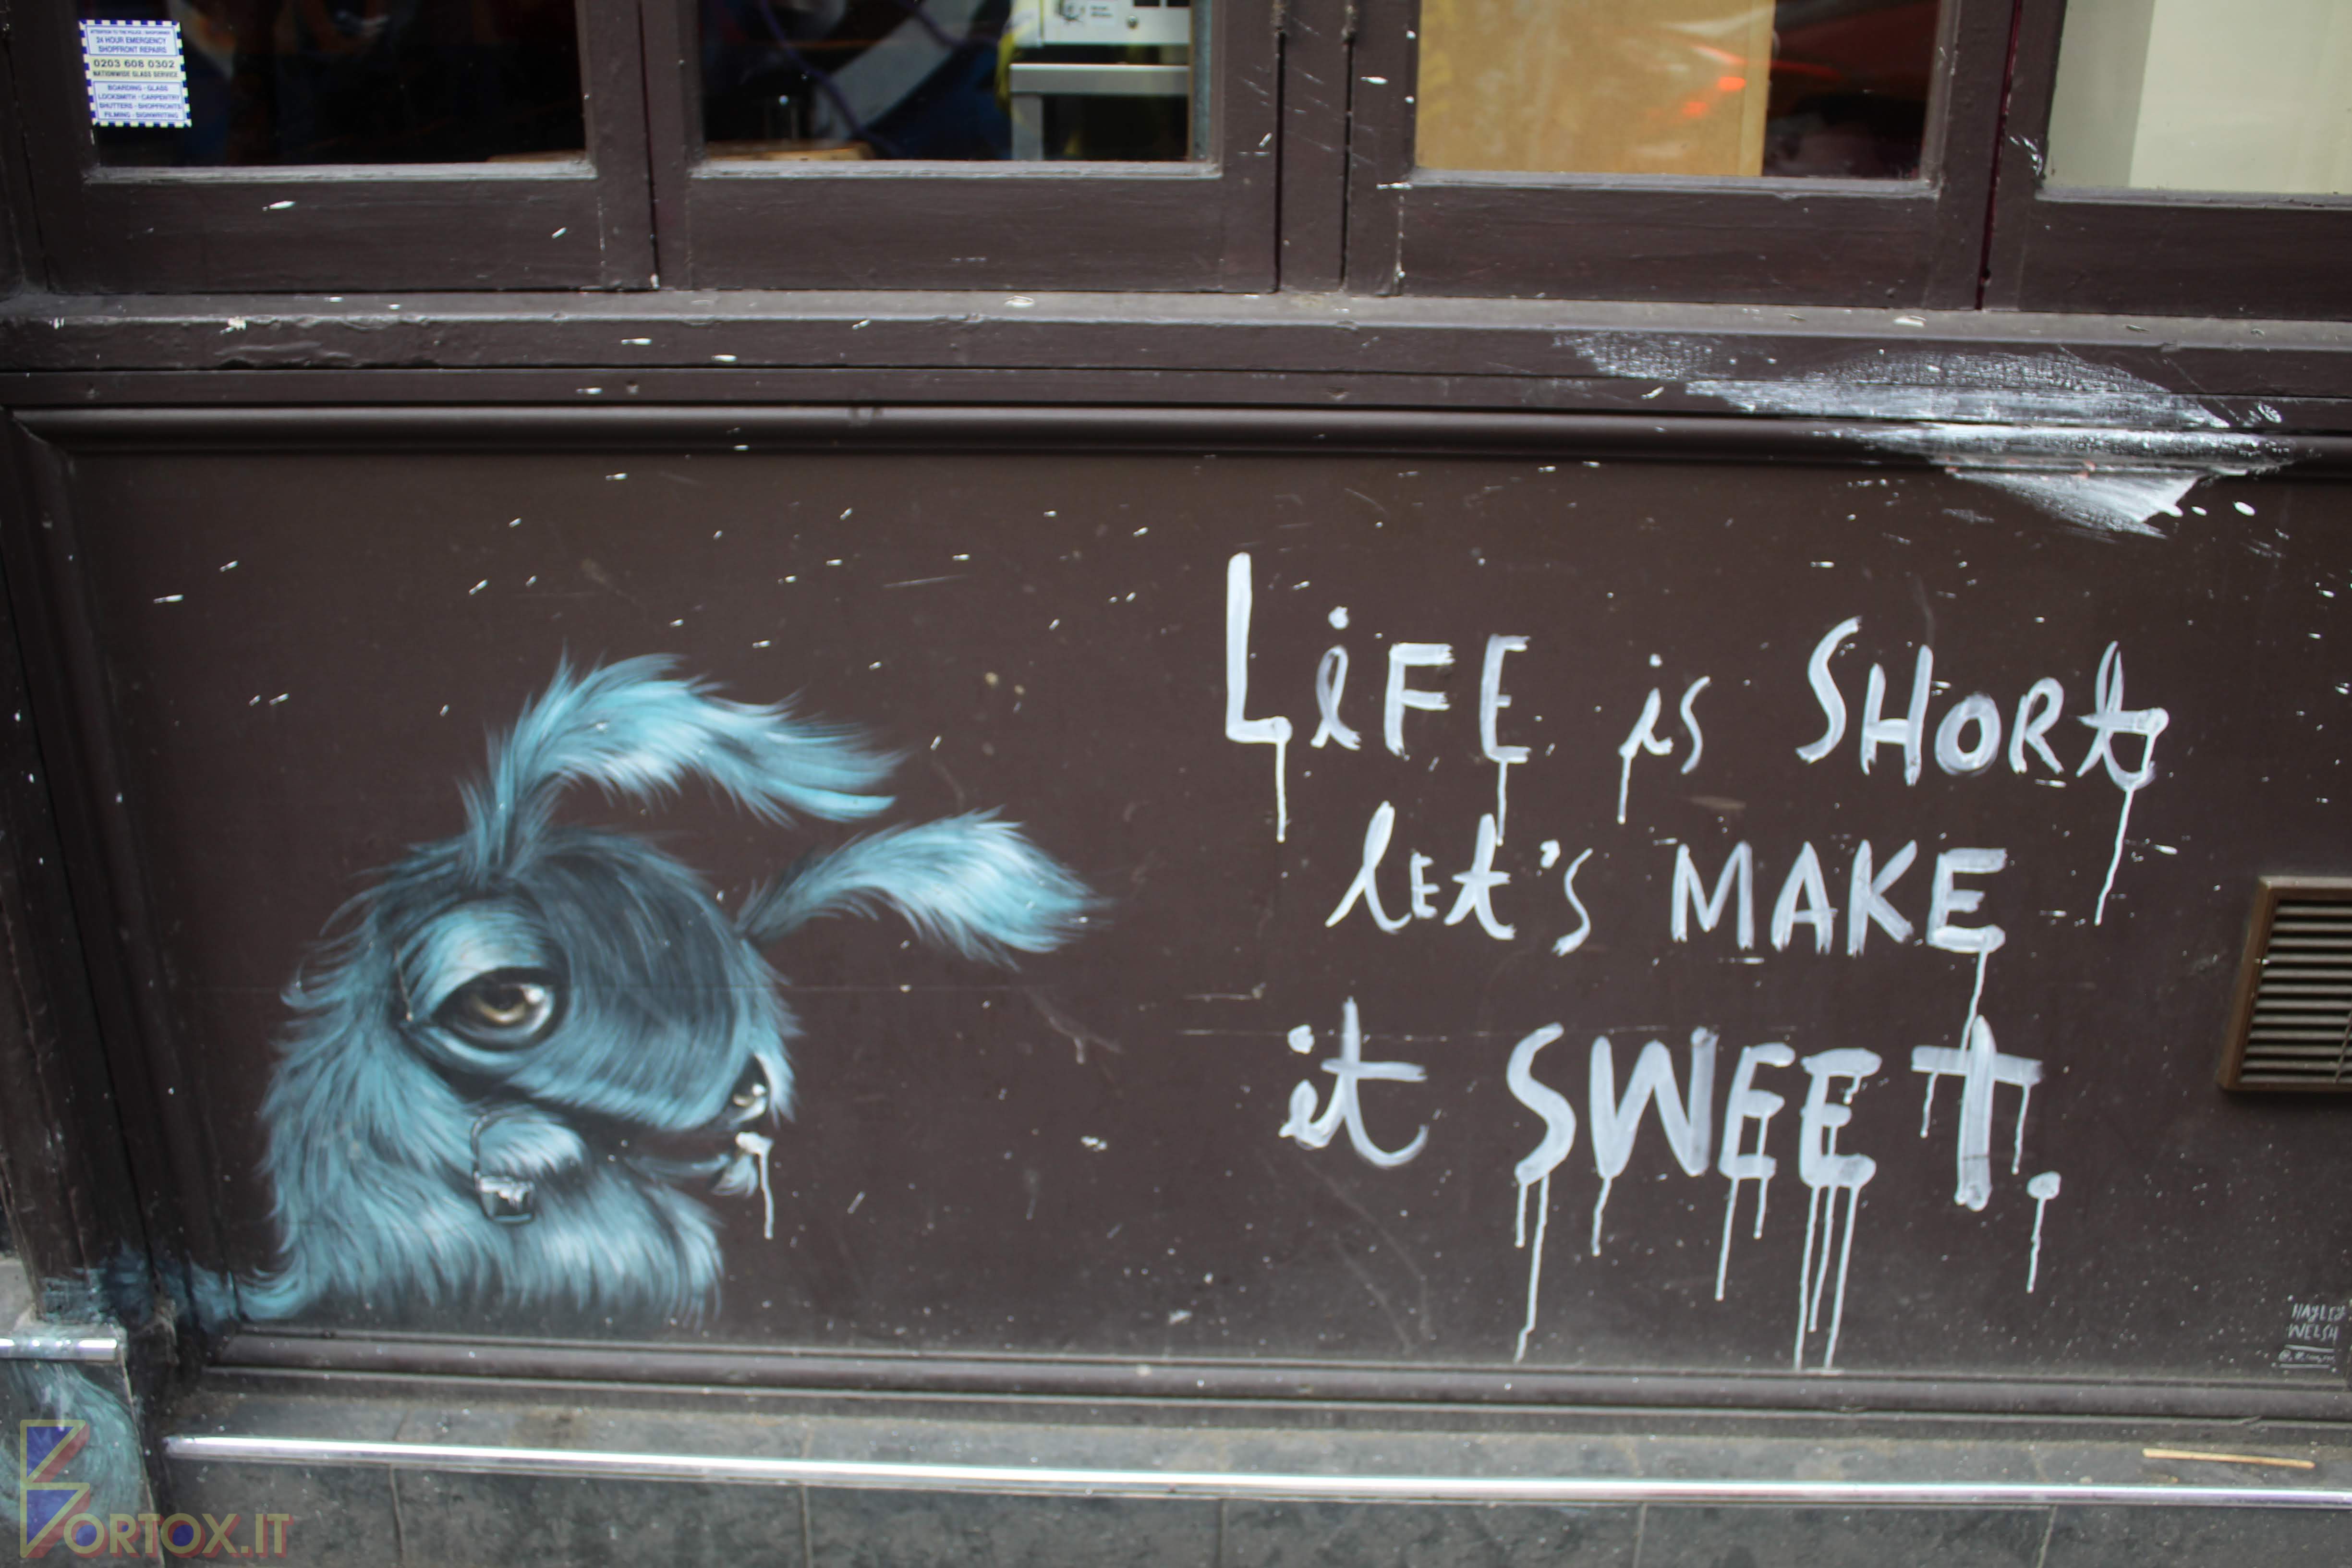 ATTENTION TO THE POLICE / SHOPOWNER
24 HOUR EMERGENCY
SHOPFRONT REPAIRS
0203 608 0302
NATIONWIDE GLASS SERVICE
BOARDING - GLASS
LOCKSMITH - CARPENTRY
SHUTTERS - SHOPFRONTS
FILMING - SIGNWRITING
LiFE is SHORt
LEt's MAKE
it SWEET.
HAYLEY
WELSH
BORTOX.IT